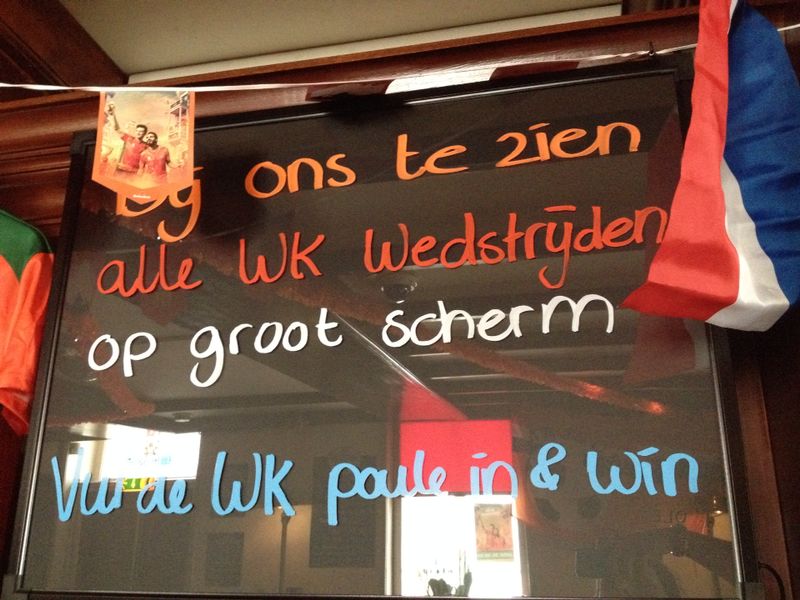 Bij ons te zien
alle WK Wedstrijden
op groot scherm
Vul de WK poule in & win